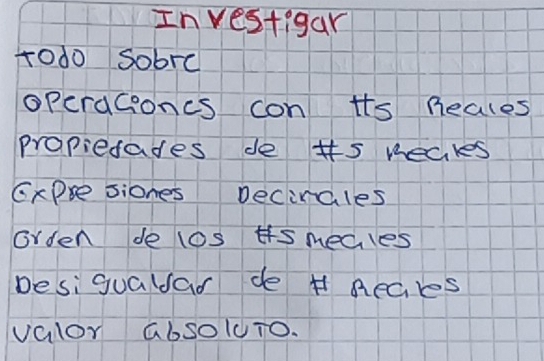 Investigar
todo sobre
operaciones con #s Reales
propiedades de #s Reales
Expresiones Decimales
orden de los #s Reales
Desigualdad de # Reales
valor absoluto.